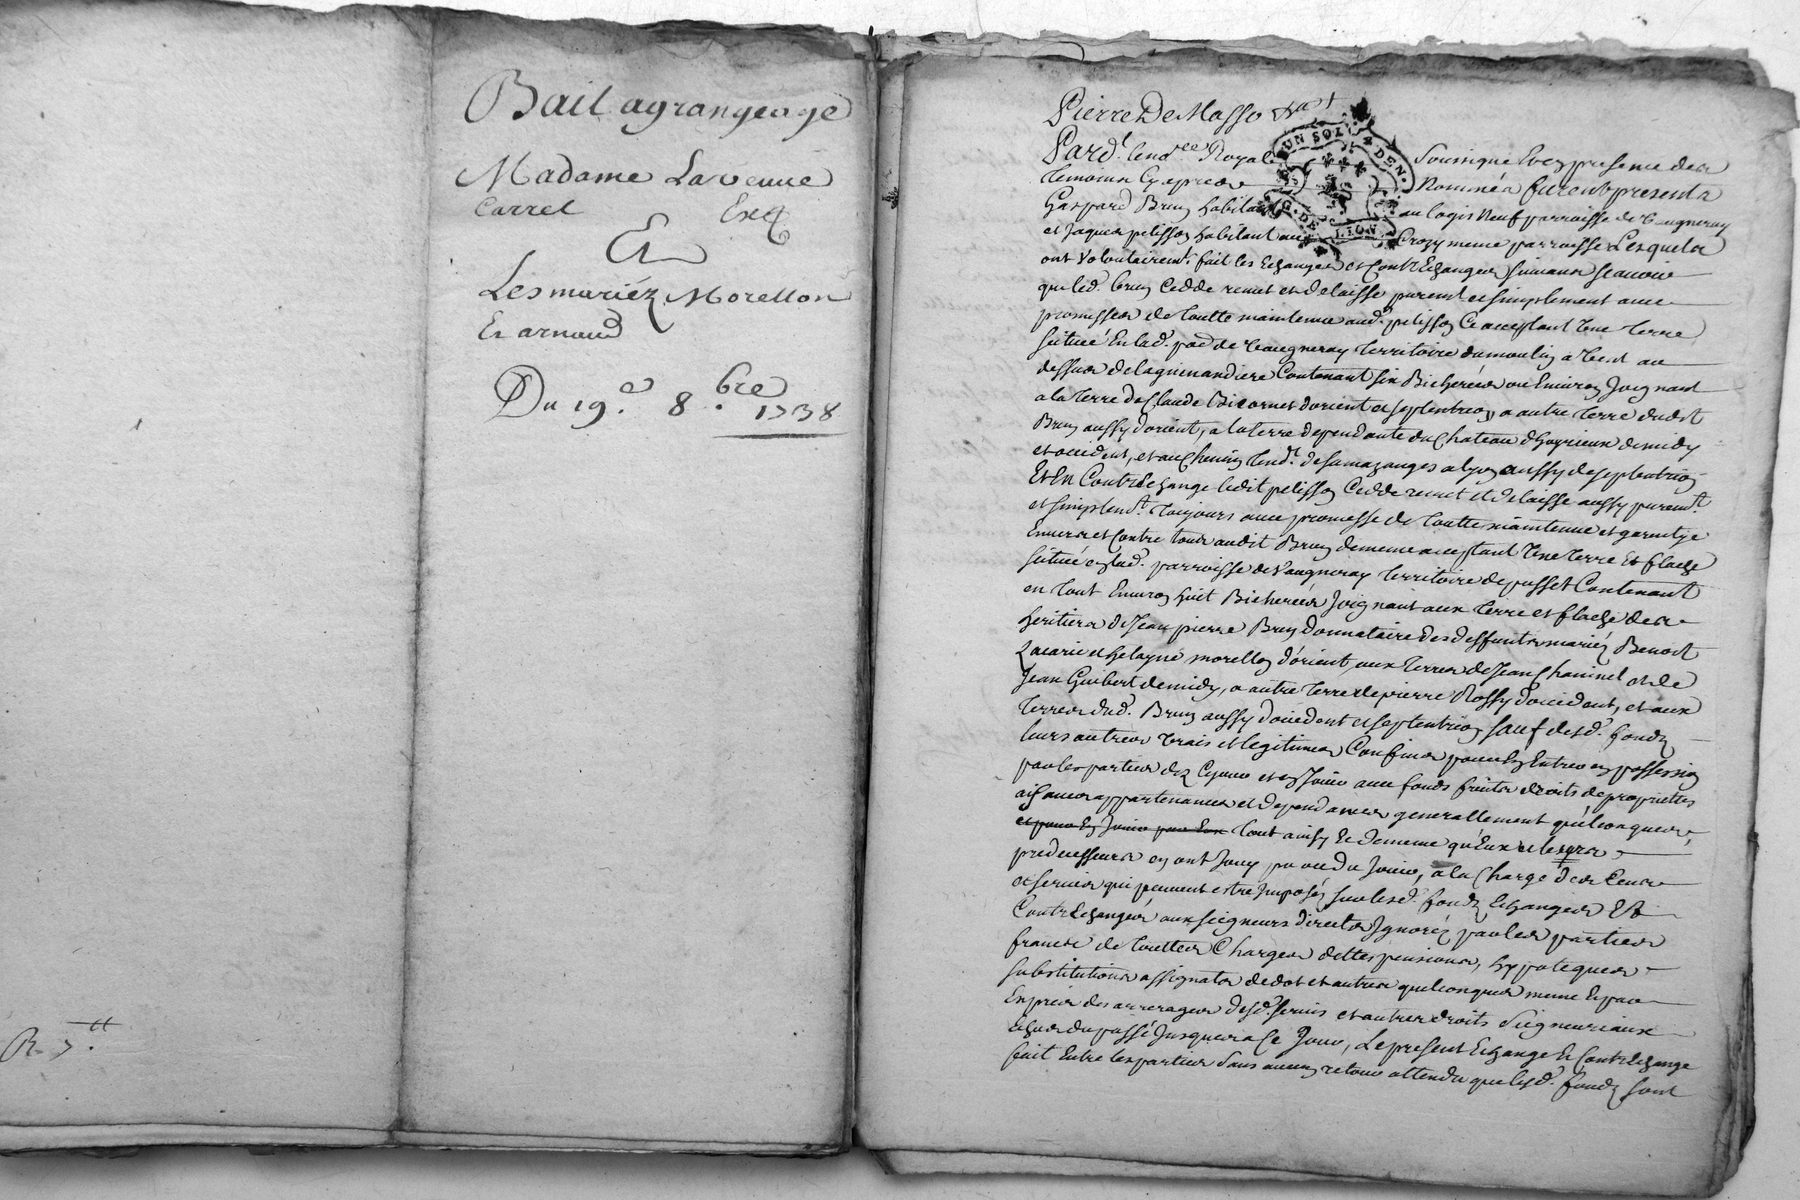 Bail a grangeage
Madame La veuve
Carret Ex
Et
Les mariéz Morellon
Et arnaud
Du 19.e 8.bre 1738
R. 5.tt
Pierre De Masso
UN SOL 4 DEN.
G. DE LION
Pard.t le no.re Royal Soussigné Et en presence des
temoins cy apres Nomméz furent presents
Gaspard Brun habitant au logis Neuf parroisse de Vaugneray
et Jaques pelisson habitant au Crozy meme parroisse Lesquels
ont Volontairem.t fait les Echanges et Contr'Echanges suivans scavoir
que led. brun Cedde remet et delaisse purem.t et simplement avec
promesses de toutte maintenue aud. pelisson Ce acceptant Une terre
situéé En lad. parr. de Vaugneray territoire du moulin a Vent au
dessus de la Contenant six Bicheréés ou Environ Joignant
a la terre de Claude Bicornet d'orient et septentrion, a autre terre dudit
Brun aussy d'orient, a la terre dependante du Chateau d'hoyrieux de midy
et occident, et au Chemin tend.t de a lyon aussy de septentrion
Et En Contr'Echange ledit pelisson Cedde remet et delaisse aussy purem.t
et simplem.t toujours avec promesse de toutte maintenue et garentye
Envers et Contre tous audit Brun de meme acceptant Une terre Et flache
situéé en lad. parroisse de Vaugneray territoire de Contenant
en tout Environ huit Bicheréés Joignant aux terre et flache des
heritiers de Jean pierre Brun donnataire des deffunts mariéz Benoit
Zacarie et morellon d'orient, aux terres de Jean Chavinel et de
Jean Guibert de midy, a autre terre de pierre Rossy d'occident, et aux
terres dud. Brun aussy d'occident et septentrion sauf desd. fondz
leurs autres Vrais et legitimes Confins pour En Entrer en possession
par les parties déz Ce jour et en Jouir aux fonds fruits droits de proprietes
aisances appartenances et dependances generallement quélconques,
et pour En Jouir par Eux tout ainsy et de meme qu'Eux et leurs
predecesseurs en ont Jouy pu ou du Jouir, a la Charge des Cens
et servis qui peuvent estre Imposéz sur lesd. fondz Echangés Et
Contr'Echangés aux seigneurs directs Ignoréz par les parties
francs de touttes Charges dettes pensions, hypoteques
substitutions assignats de dot et autres quelconques meme Expres
des arrerages desd. servis et autres droits Seigneuriaux
Echus du passé Jusques a Ce Jour, Le present Echange Et Contr'Echange
fait Entre les parties sans aucun retour attendu que lesd. fondz sont